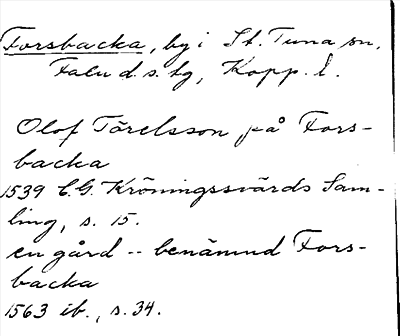 Forsbacka, by i St. Tuna sn,
Falu d.s. tg, Kopp. l.
Olof Törelsson på Fors-
backa
1539 C.G. Kröningssvärds Sam-
ling, s. 15.
en gård -- benämnd Fors-
backa
1563 ib., s. 34.